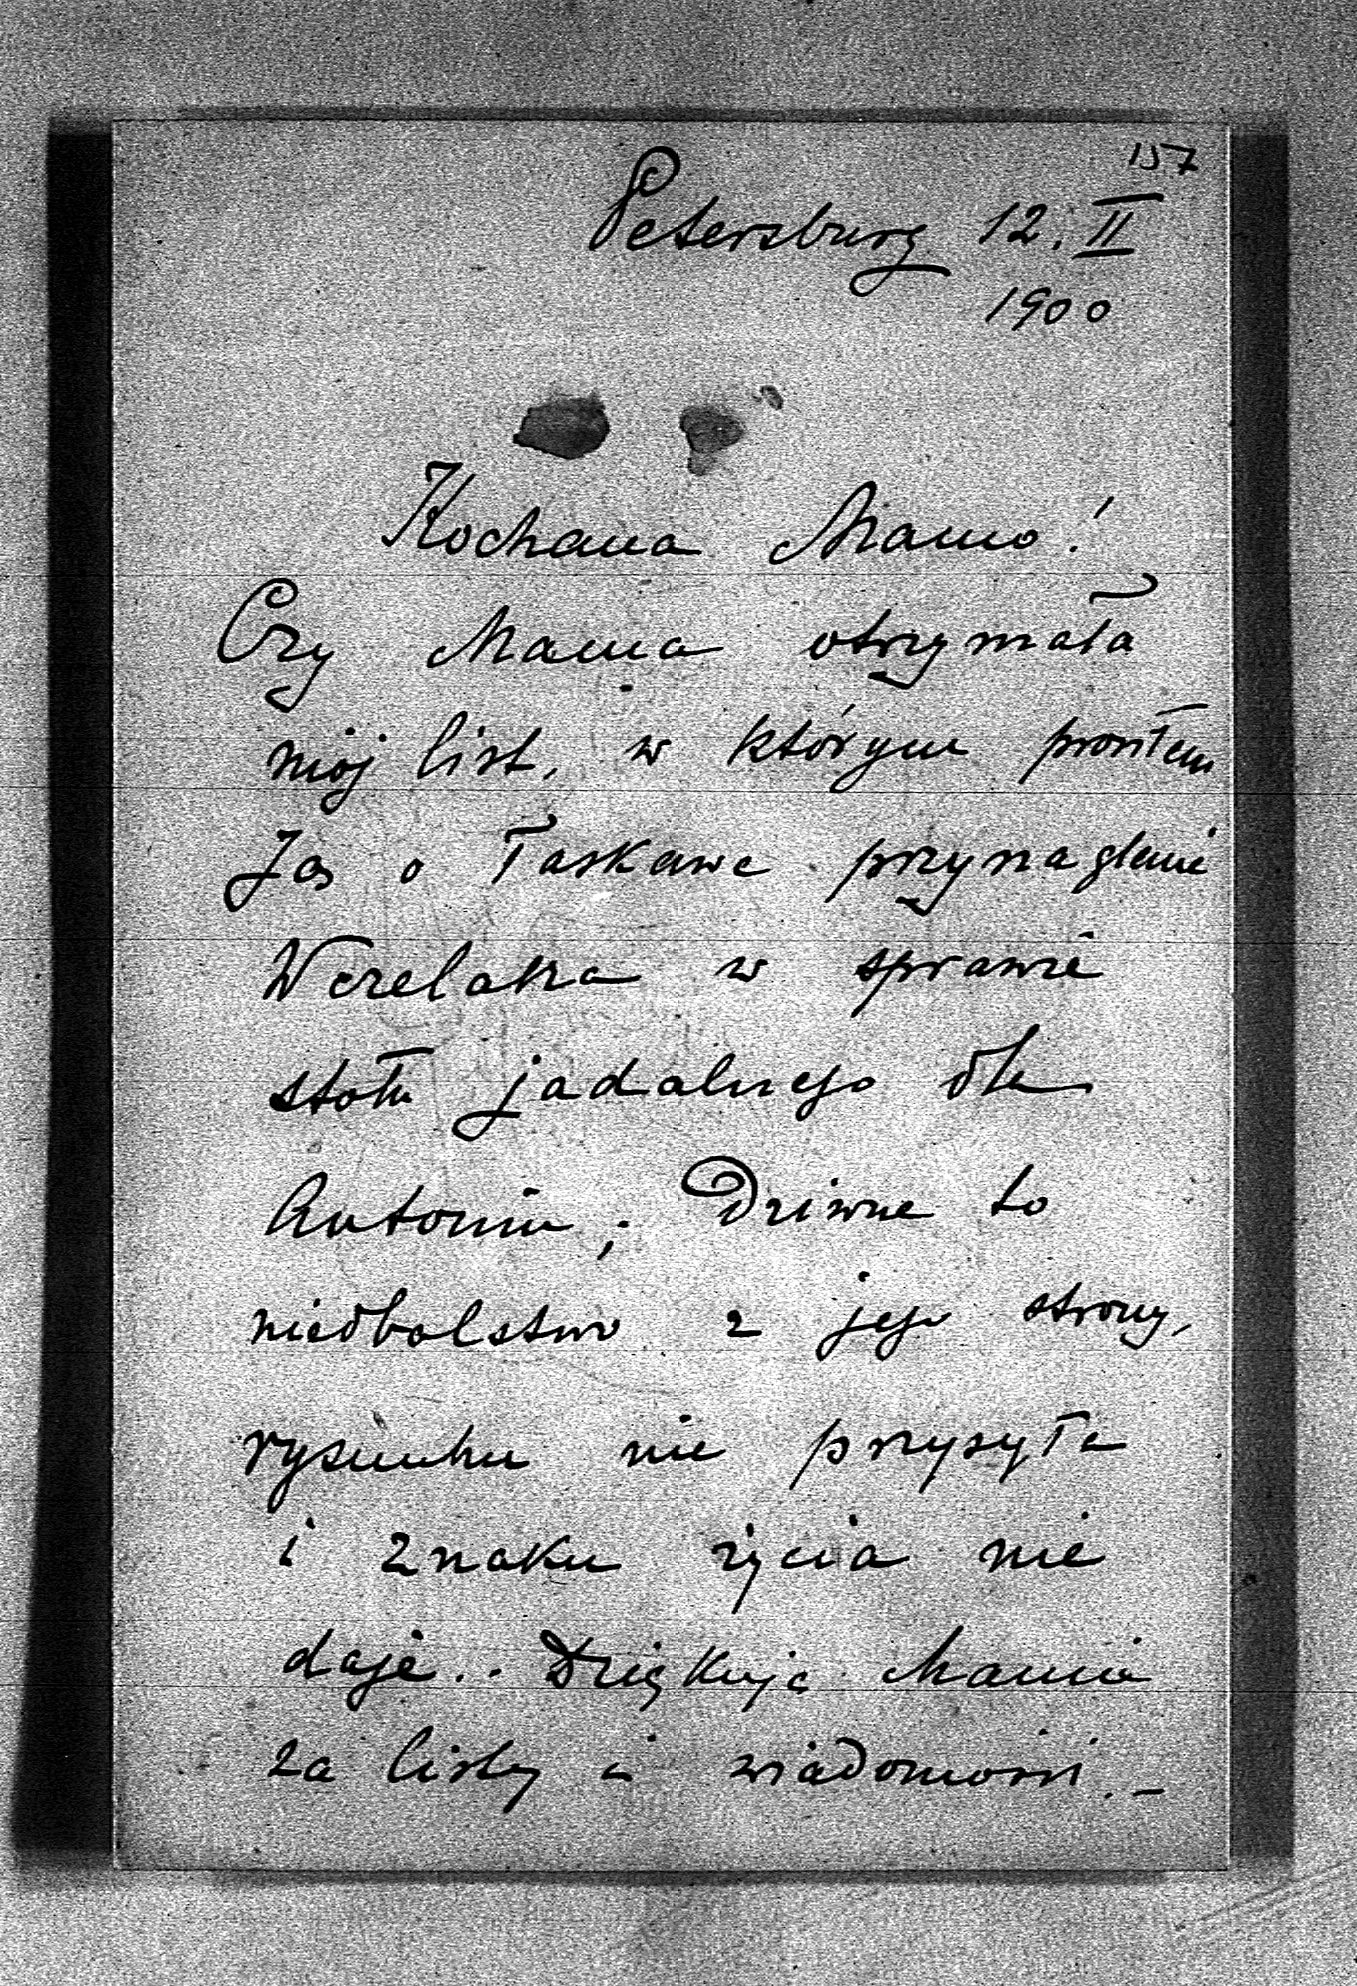 157
Petersburg 12. II
1900
Kochana Mamo!
Czy Mama otrzymała
mój list, w którym prosiłem
Ją o łaskawe przynaglenie
Wczelaka w sprawie
stołu jadalnego dla
Antonin; Dziwne to
niedbalstwo z jego strony,
rysunku nie przysyła
i znaku życia nie
daje.. Dziękuję Mamie
za listy i wiadomości. –